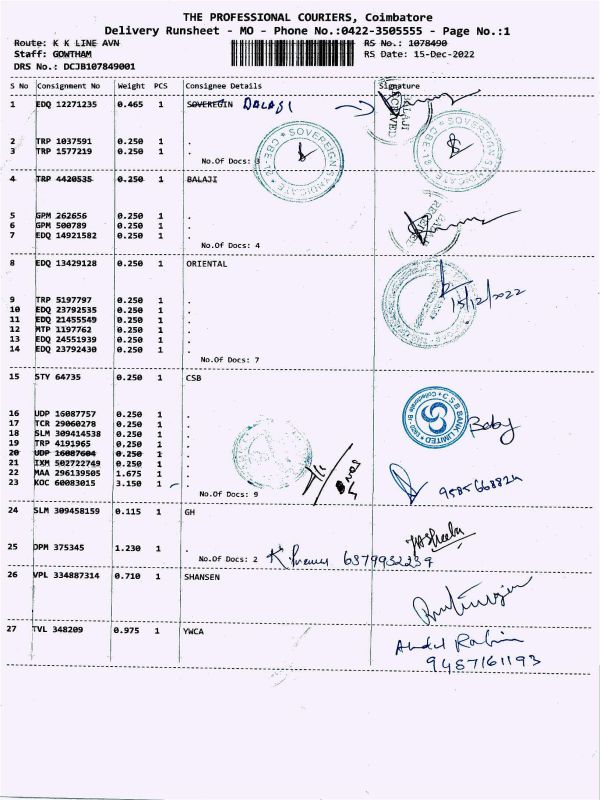 THE PROFESSIONAL COURIERS, Coimbatore
Delivery Runsheet - MO - Phone No.:0422-3505555 - Page No.:1
Route: K K LINE AVN RS No.: 1078490
Staff: GOWTHAM RS Date: 15-Dec-2022
DRS No.: DCJB107849001
S No Consignment No Weight PCS Consignee Details Signature
1 EDQ 12271235 0.465 1 SOVEREGIN BALAJI
2 TRP 1037591 0.250 1 .
3 TRP 1577219 0.250 1 .
No.Of Docs: 3
4 TRP 4420535 0.250 1 BALAJI
5 GPM 262656 0.250 1 .
6 GPM 500789 0.250 1 .
7 EDQ 14921582 0.250 1 .
No.Of Docs: 4
8 EDQ 13429128 0.250 1 ORIENTAL
15/12/2022
9 TRP 5197797 0.250 1 .
10 EDQ 23792535 0.250 1 .
11 EDQ 21455549 0.250 1 .
12 MTP 1197762 0.250 1 .
13 EDQ 24551939 0.250 1 .
14 EDQ 23792430 0.250 1 .
No.Of Docs: 7
15 STY 64735 0.250 1 CSB
CSB BANK LIMITED
16 UDP 16087757 0.250 1 .
17 TCR 29060278 0.250 1 . Baby
18 SLM 309414538 0.250 1 .
19 TRP 4191965 0.250 1 .
20 UDP 16087604 0.250 1 .
21 IXM 502722749 0.250 1 .
22 MAA 296139505 1.675 1 .
23 KOC 60083015 3.150 1 .
No.Of Docs: 9
24 SLM 309458159 0.115 1 GH
25 DPM 375345 1.230 1 .
No.Of Docs: 2 6379932239
26 VPL 334887314 0.710 1 SHANSEN
27 TVL 348209 0.975 1 YWCA Abdul Rahim
9487161193